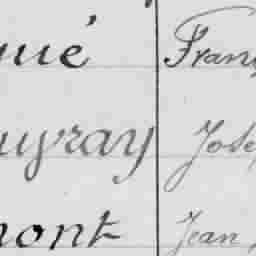 ué Franç
uyray Jose
mont Jean